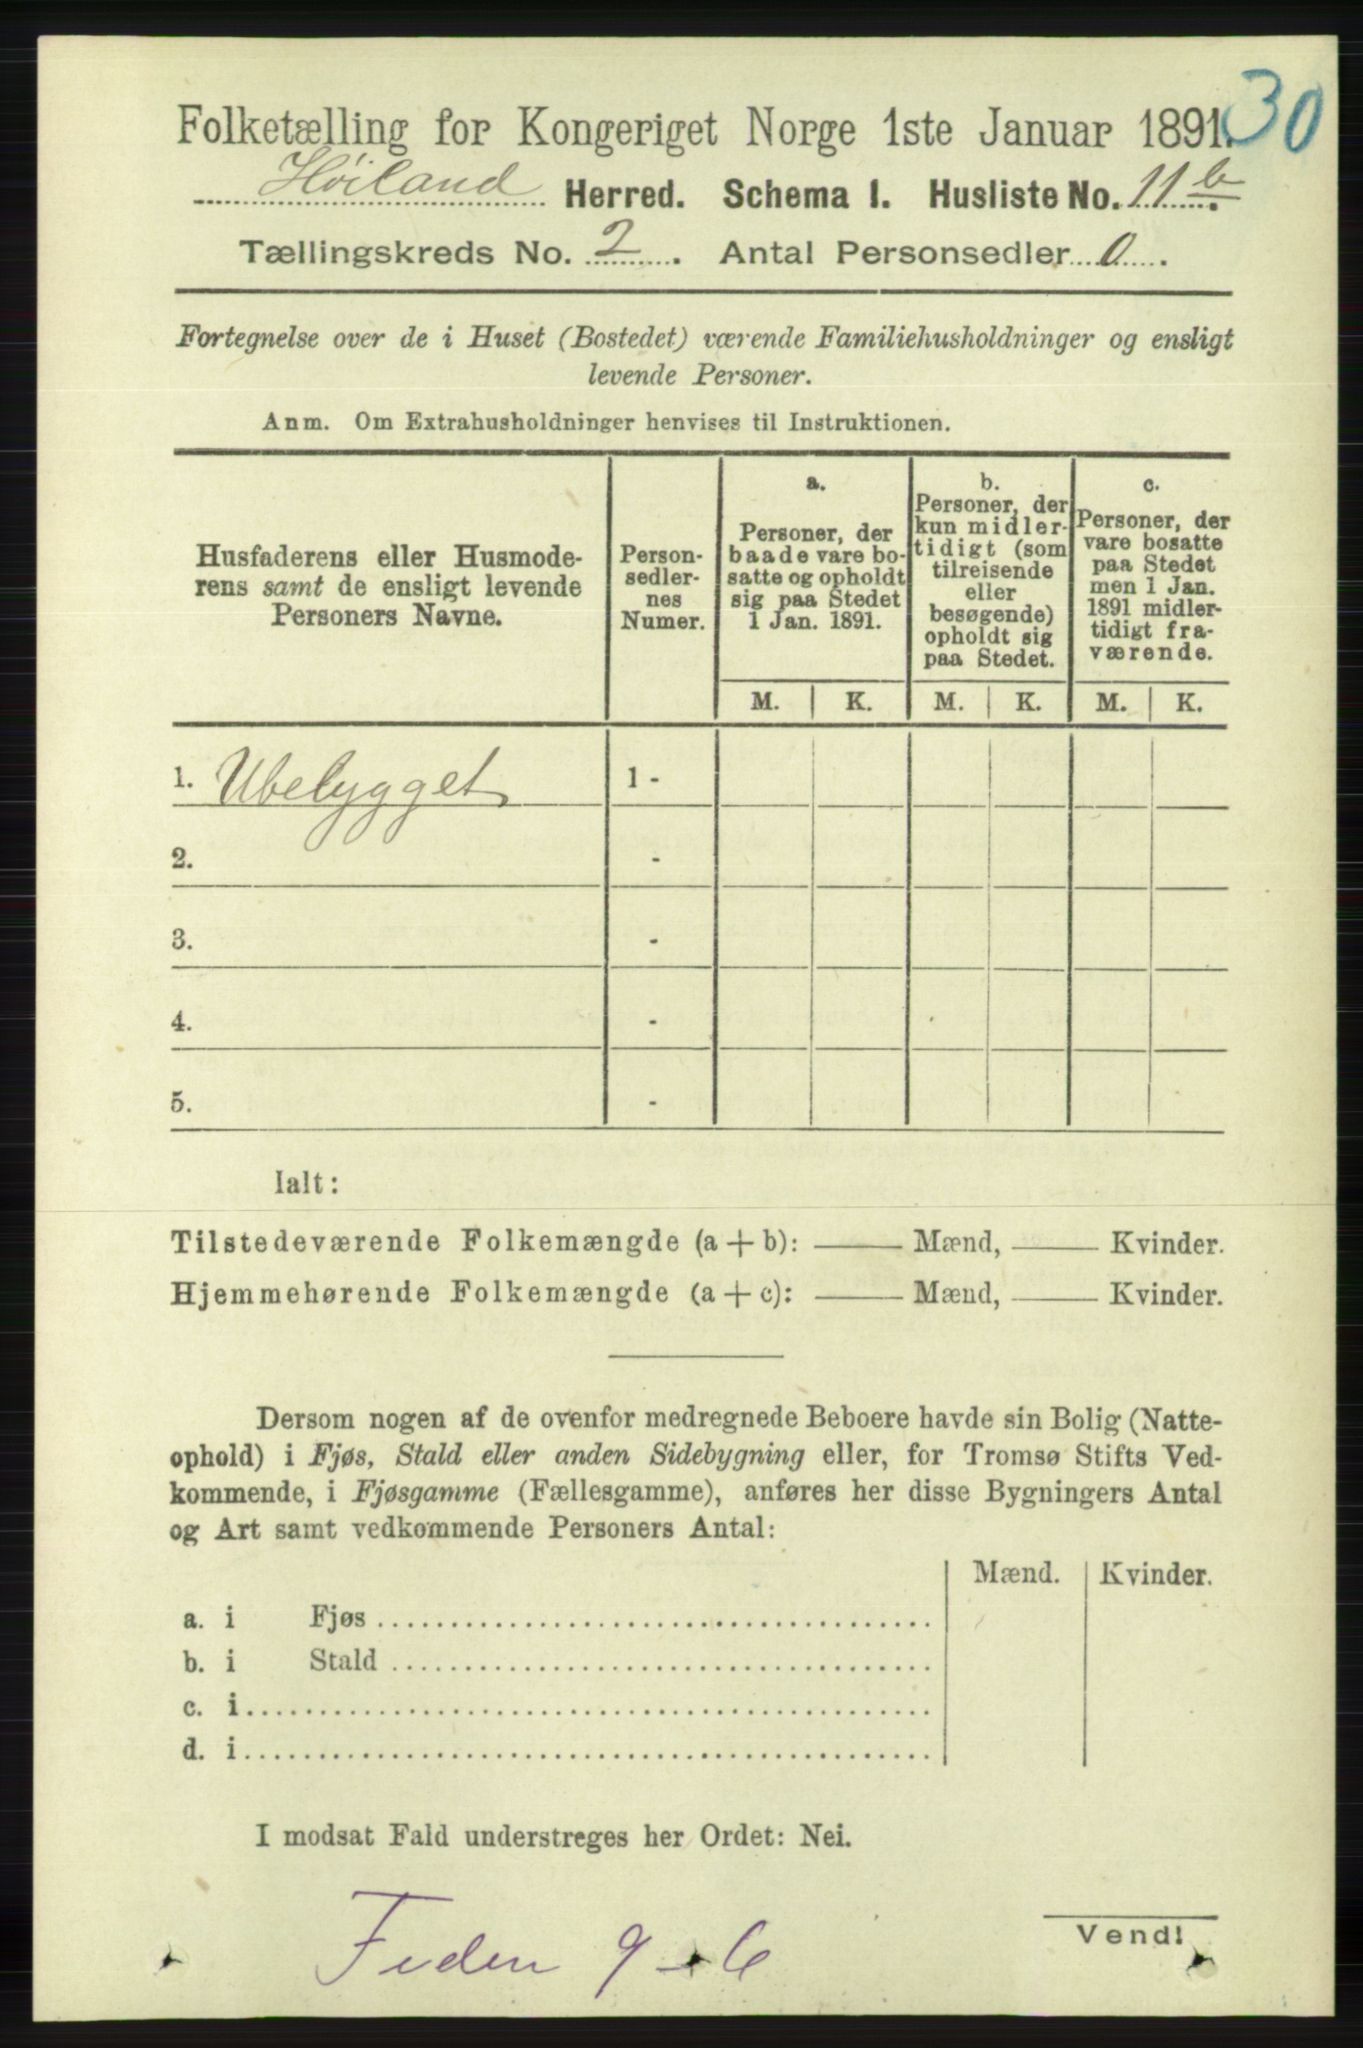 30
Folketælling for Kongeriget Norge 1ste Januar 1891.
Høiland Herred. Schema I. Husliste No. 11 b.
Tællingskreds No. 2. Antal Personsedler 0.
Fortegnelse over de i Huset (Bostedet) værende Familiehusholdninger og ensligt
levende Personer.
Anm. Om Extrahusholdninger henvises til Instruktionen.
Husfaderens eller Husmode-
rens samt de ensligt levende
Personers Navne.
Person-
sedler-
nes
Numer.
a.
Personer, der
baade vare bo-
satte og opholdt
sig paa Stedet
1 Jan. 1891.
b.
Personer, der
kun midler-
tidigt (som
tilreisende
eller
besøgende)
opholdt sig
paa Stedet.
c.
Personer, der
vare bosatte
paa Stedet
men 1 Jan.
1891 midler-
tidigt fra-
værende.
M. K. M. K. M. K.
1. Ubebygget 1 -
2. -
3. -
4. -
5. -
Ialt:
Tilstedeværende Folkemængde (a + b): —— Mænd, —— Kvinder.
Hjemmehørende Folkemængde (a + c): —— Mænd, —— Kvinder.
Dersom nogen af de ovenfor medregnede Beboere havde sin Bolig (Natte-
ophold) i Fjøs, Stald eller anden Sidebygning eller, for Tromsø Stifts Ved-
kommende, i Fjøsgamme (Fællesgamme), anføres her disse Bygningers Antal
og Art samt vedkommende Personers Antal:
Mænd. Kvinder.
a. i Fjøs
b. i Stald
c. i
d. i
I modsat Fald understreges her Ordet: Nei.
Vend!
Feden 9 - 6